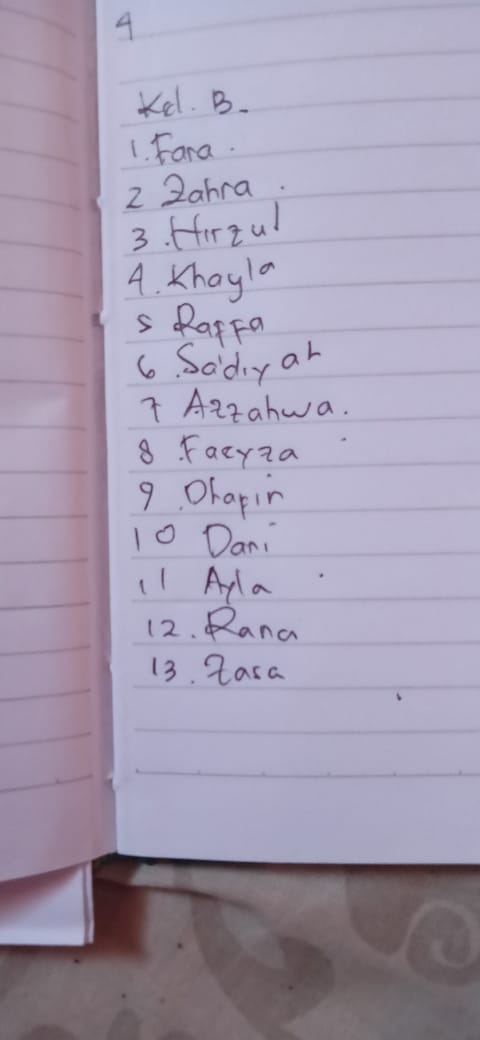 4
Kel. B.
1. Fara.
2 Zahra.
3. Hirzul
4. Khayla
5 Raffa
6. Sa'diyah
7 Azzahwa.
8. Faeyza
9. Dhafin
10 Dani
11 Ayla
12. Rana
13. Zasa